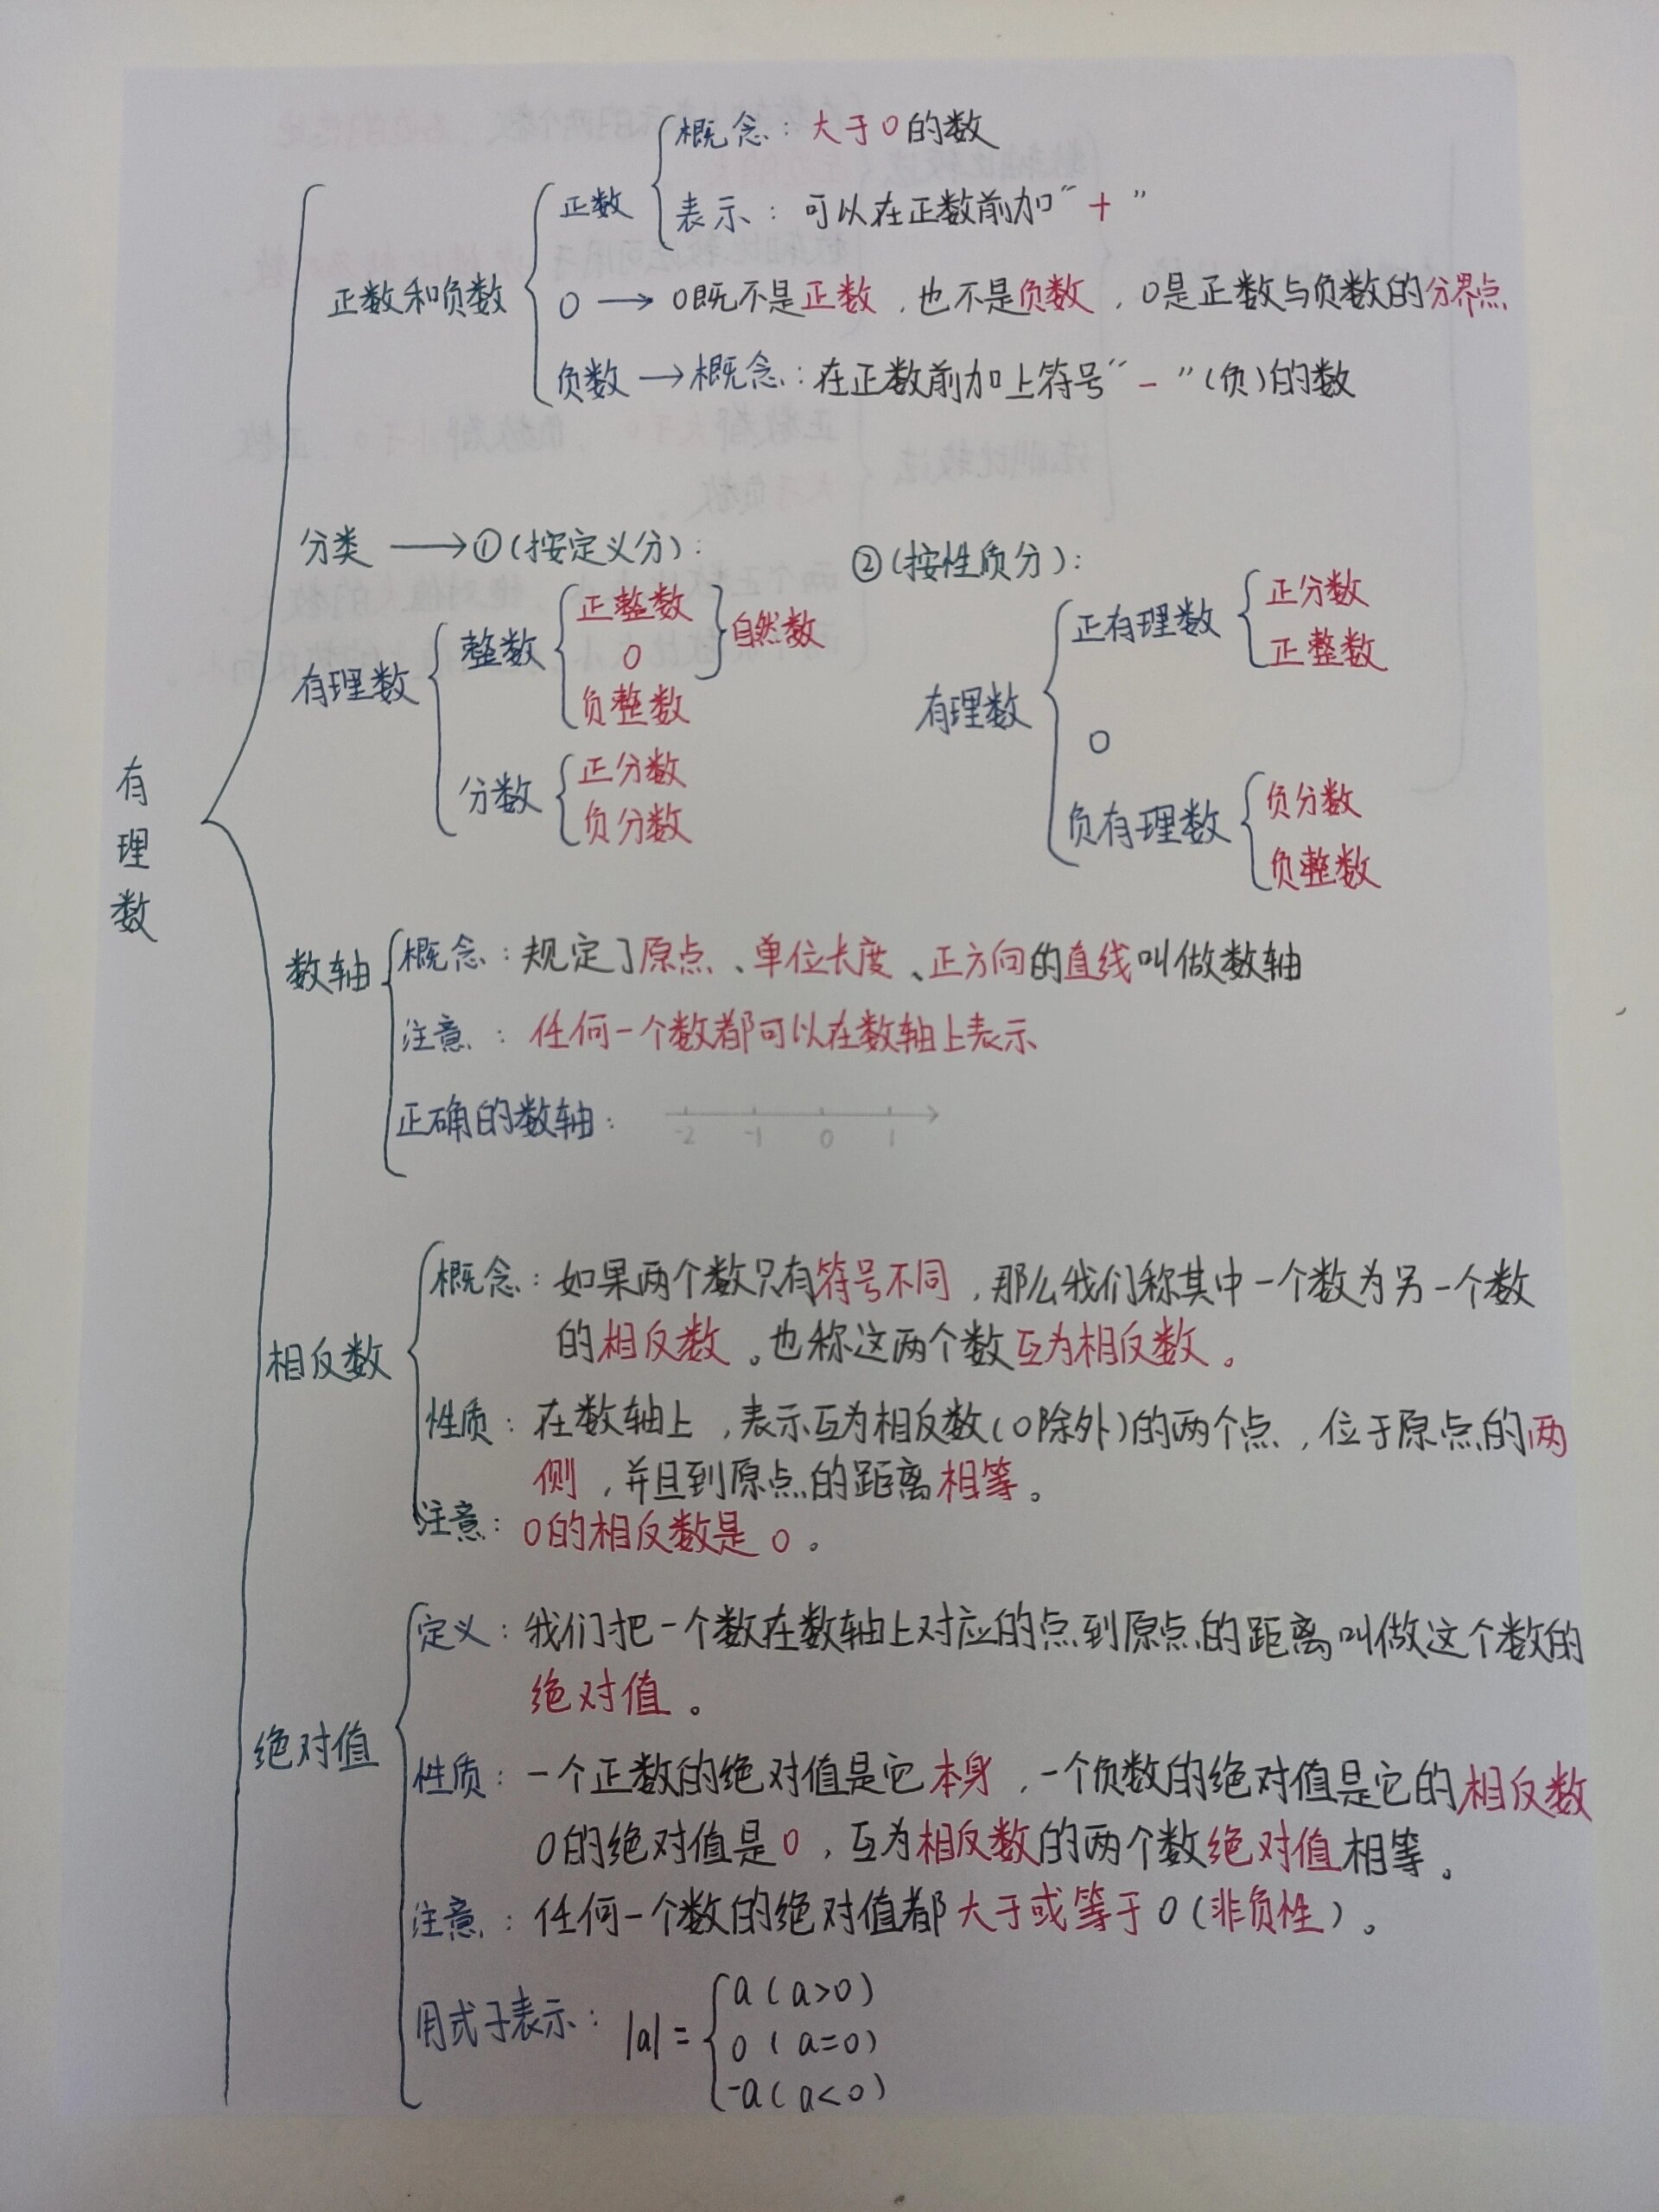 有理数
正数和负数
正数
概念：大于0的数
表示：可以在正数前加“+”
0 → 0既不是正数，也不是负数，0是正数与负数的分界点
负数 → 概念：在正数前加上符号“-”(负)的数
分类 → ①(按定义分)：
有理数
整数
正整数
0
负整数
自然数
分数
正分数
负分数
②(按性质分)：
有理数
正有理数
正分数
正整数
0
负有理数
负分数
负整数
数轴
概念：规定了原点、单位长度、正方向的直线叫做数轴
注意：任何一个数都可以在数轴上表示
正确的数轴：
-2 -1 0 1
相反数
概念：如果两个数只有符号不同，那么我们称其中一个数为另一个数
的相反数。也称这两个数互为相反数。
性质：在数轴上，表示互为相反数(0除外)的两个点，位于原点的两
侧，并且到原点的距离相等。
注意：0的相反数是0。
绝对值
定义：我们把一个数在数轴上对应的点到原点的距离叫做这个数的
绝对值。
性质：一个正数的绝对值是它本身，一个负数的绝对值是它的相反数
0的绝对值是0，互为相反数的两个数绝对值相等。
注意：任何一个数的绝对值都大于或等于0(非负性)。
用式子表示：|a|=
a(a>0)
0(a=0)
-a(a<0)